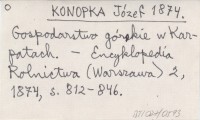 KONOPKA Józef 1874.
Gospodarstwo górskie w Kar-
patach. – Encyklopedia
Rolnictwa (Warszawa) 2,
1874, s. 812-846.